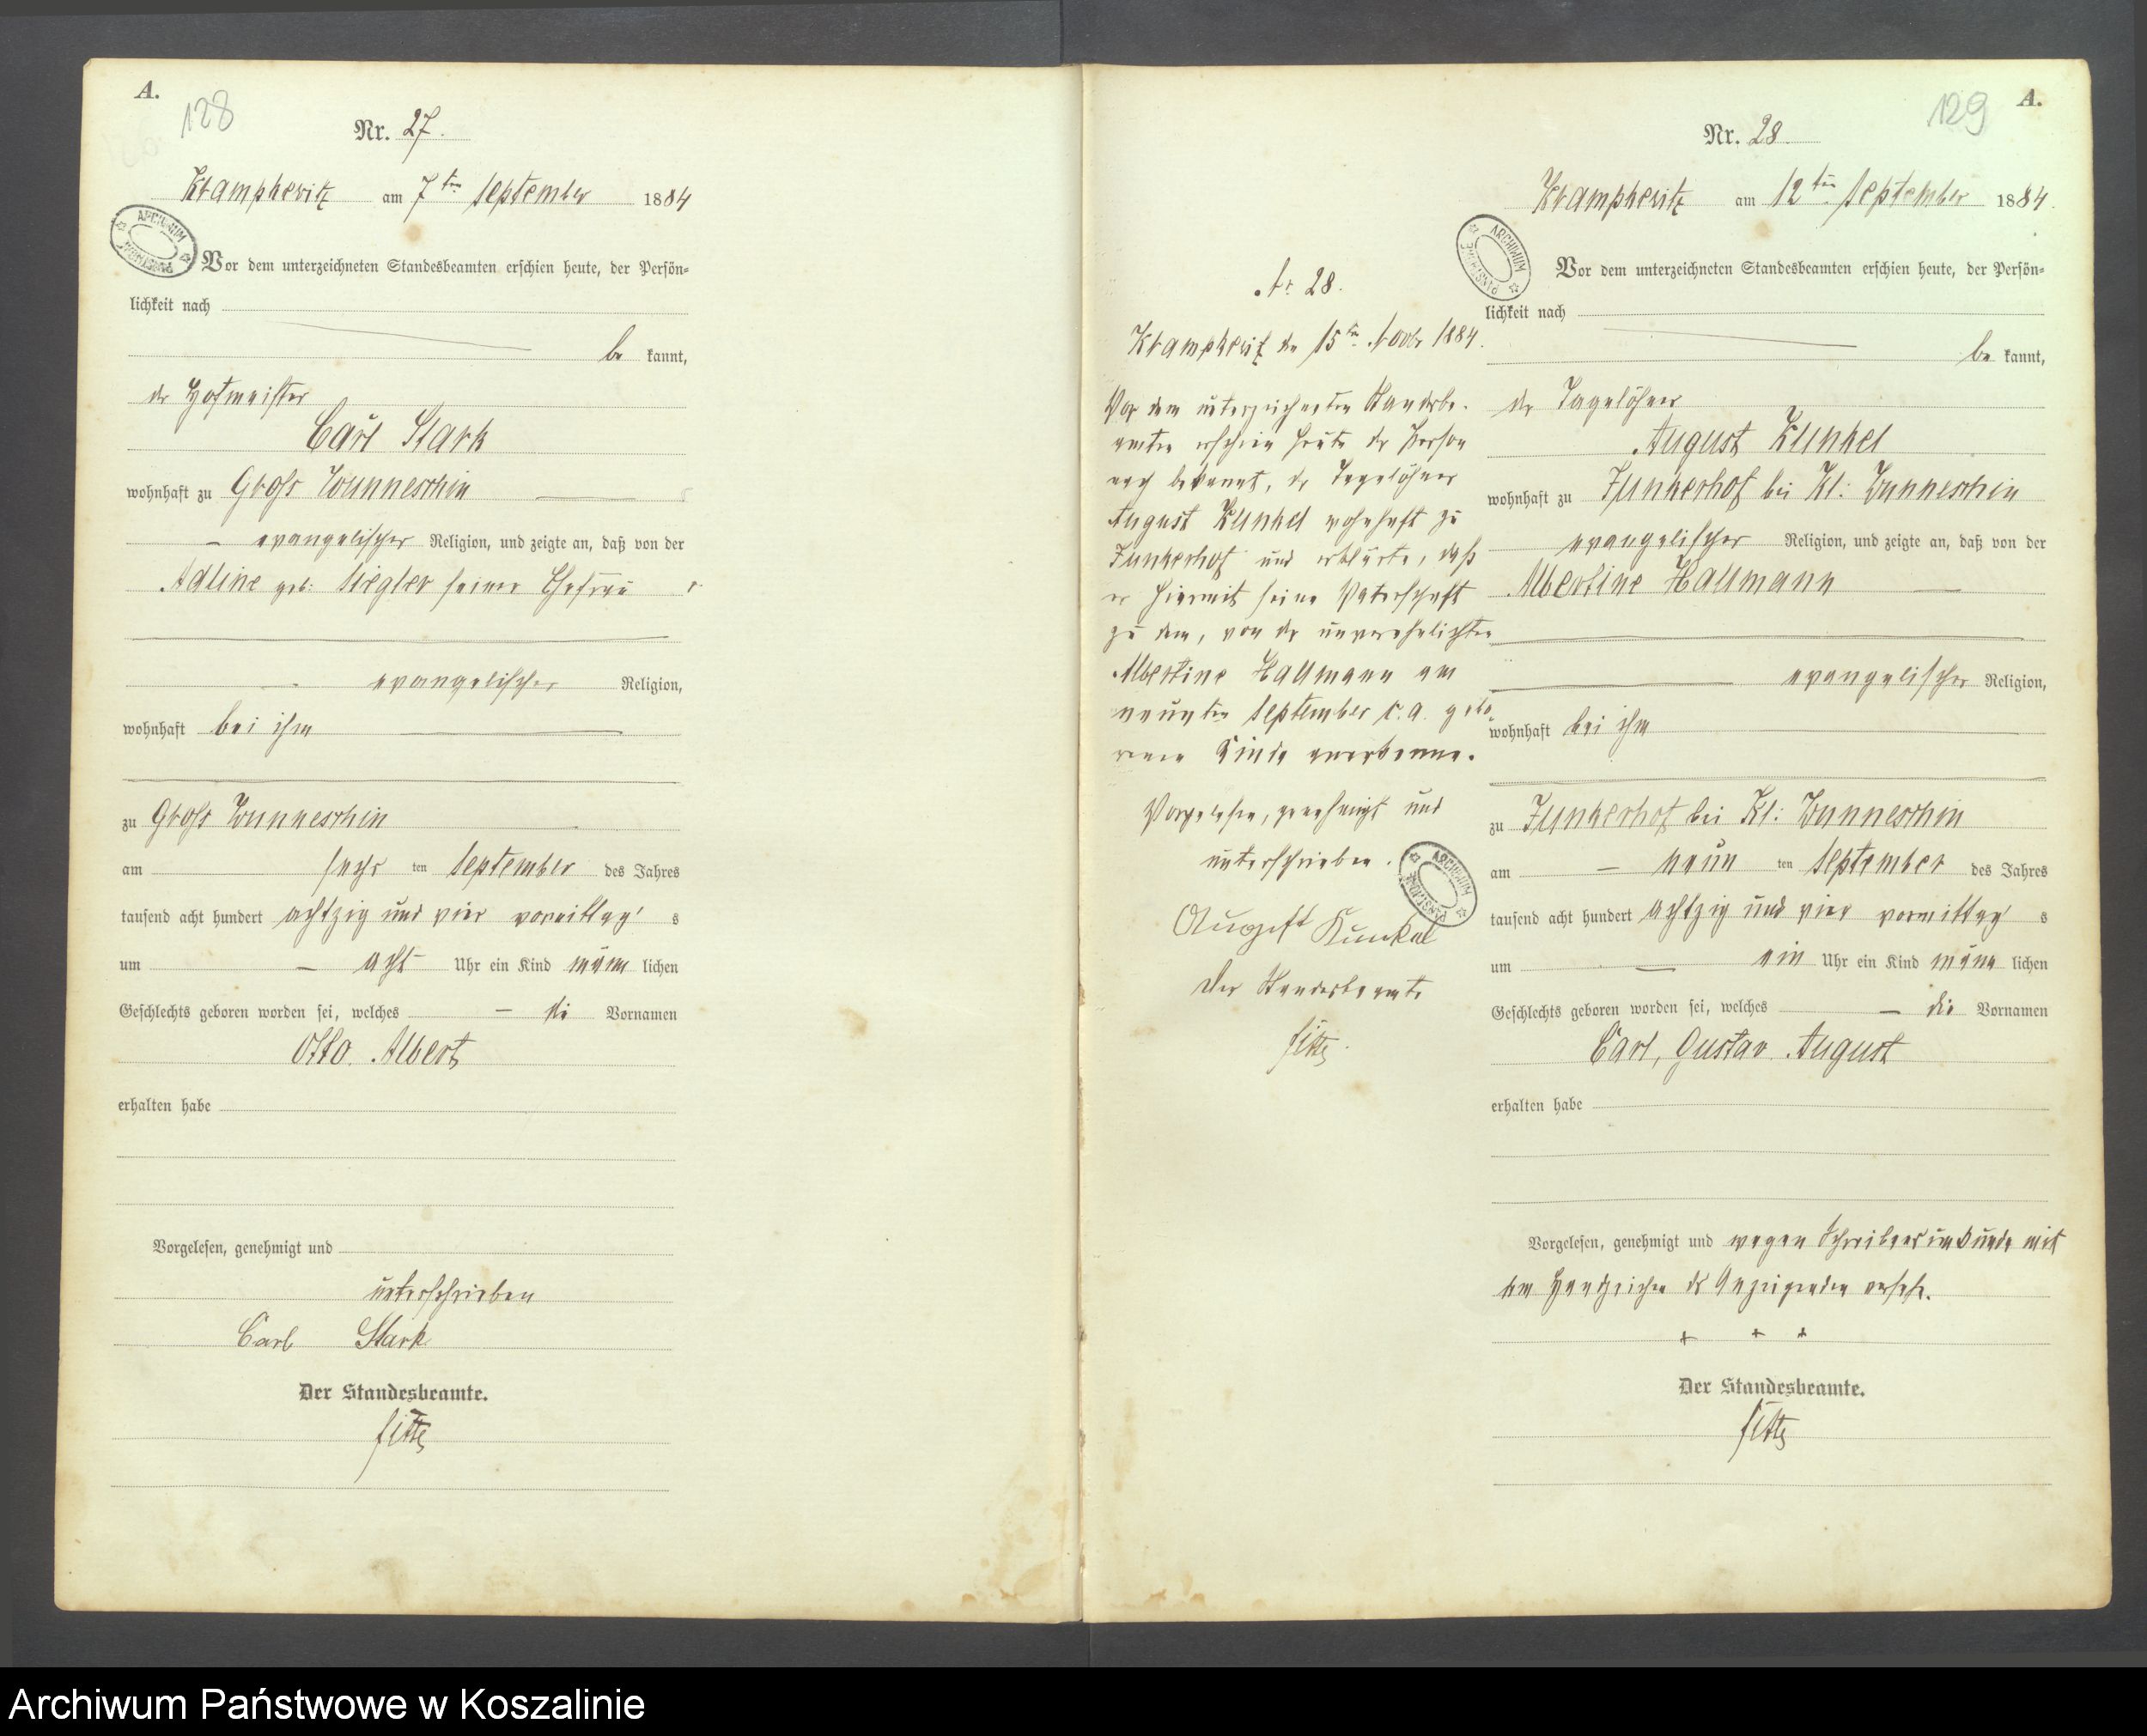 A.
128
Nr. 27.
Krampkewitz am 7ten September 1884
Vor dem unterzeichneten Standesbeamten erschien heute, der Persön-
lichkeit nach
be kannt,
der Hofmeister
Carl Stark
wohnhaft zu Gross Wunneschin
evangelischer Religion, und zeigte an, daß von der
geb: Siegler seiner Ehefrau
evangelischer Religion,
wohnhaft bei ihm
zu Gross Wunneschin
am sechs ten September des Jahres
tausend acht hundert achtzig und vier vormittag s
um acht Uhr ein Kind männ lichen
Geschlechts geboren worden sei, welches die Vornamen
Otto Albert
erhalten habe
Vorgelesen, genehmigt und
unterschrieben
Carl Stark
Der Standesbeamte.
ARCHIWUM PAŃSTWOWE
Nr. 28.
Krampkewitz den 15ten Novbr 1884.
Vor dem unterzeichneten Standesbe-
amten erschien heute der Person
nach bekannt, der Tagelöhner
August Kunkel wohnhaft zu
Junkerhof und erklärte, daß
er hiermit seine Vaterschaft
zu dem, von der unverehelichten
Albertine Hallmann am
neunten September c. a. gebo-
renen Kinde anerkenne.
Vorgelesen, genehmigt und
unterschrieben.
August Kunkel
Der Standesbeamte
ARCHIWUM PAŃSTWOWE
129
A.
Nr. 28.
Krampkewitz am 12ten September 1884.
Vor dem unterzeichneten Standesbeamten erschien heute, der Persön-
lichkeit nach
be kannt,
der Tagelöhner
August Kunkel
wohnhaft zu Junkerhof bei Kl: Wunneschin
evangelischer Religion, und zeigte an, daß von der
Albertine Hallmann
evangelischer Religion,
wohnhaft bei ihm
zu Junkerhof bei Kl: Wunneschin
am neun ten September des Jahres
tausend acht hundert achtzig und vier vormittag s
um ein Uhr ein Kind männ lichen
Geschlechts geboren worden sei, welches die Vornamen
Carl, Gustav August
erhalten habe
Vorgelesen, genehmigt und wegen Schreibensunkunde mit
dem Handzeichen des Anzeigenden versehn.
+ + +
Der Standesbeamte.
ARCHIWUM PAŃSTWOWE
Archiwum Państwowe w Koszalinie